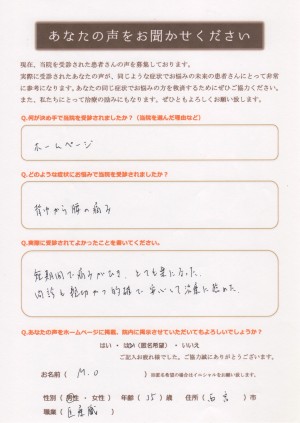 あなたの声をお聞かせください
現在、当院を受診された患者さんの声を募集しております。
実際に受診されたあなたの声が、同じような症状でお悩みの未来の患者さんにとって非常
に参考になります。あなたの同じ症状でお悩みの方を救済するためにぜひご協力ください。
また、私たちにとって治療の励みにもなります。ぜひともよろしくお願い致します。
Q.何が決め手で当院を受診されましたか?(当院を選んだ理由など)
ホームページ
Q.どのような症状にお悩みで当院を受診されましたか?
背中から腰の痛み
Q.実際に受診されてよかったことを書いてください。
短期間で痛みがひき、とても楽になった。
問診も親切かつ的確で安心して治療に臨めた。
Q.あなたの声をホームページに掲載、院内に掲示させていただいてもよろしいでしょうか?
はい ・ はい(匿名希望) ・ いいえ
ご記入お疲れ様でした。ご協力誠にありがとうございます。
お名前( M.O ) ※匿名希望の場合はイニシャルをお願い致します。
性別(男性 ・ 女性) 年齢( 35 )歳 住所( )市
職業( )